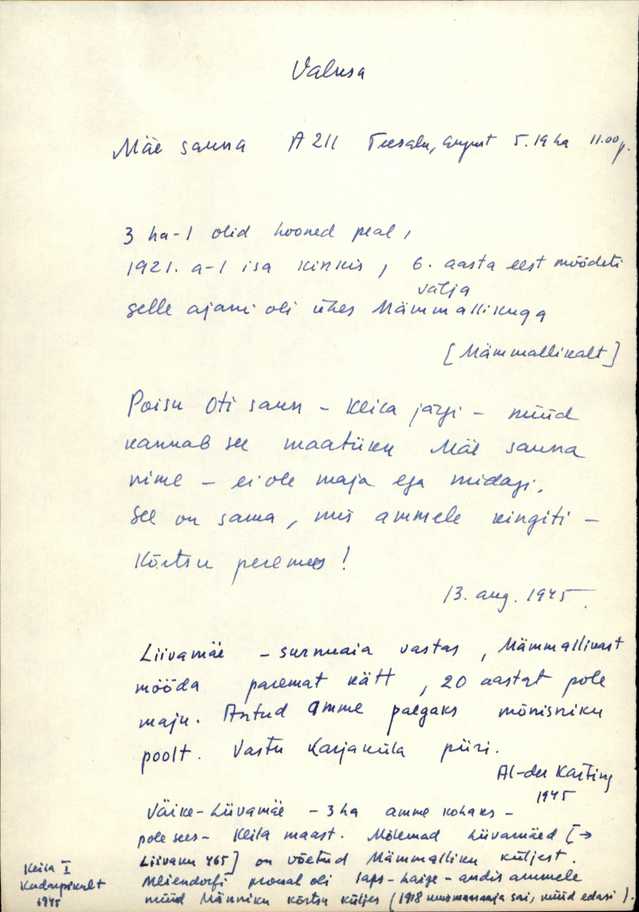 Valusa
Mäe sauna A 211 Teesalu, august 5. 19 ha 11.00 p.
3 ha-l olid hooned peal,
1921. a-l isa kinkis, 6. aasta eest mõõdeti
välja
selle ajani oli ühes Mämmallikuga
[Mämmallikalt]
Poisu Oti saun - Keila järgi - nüüd
kannab see maatükk Mäe sauna
nime - ei ole maja ega midagi.
See on sama, mis ammele kingiti -
Kõrtsu peremees!
13. aug. 1945.
Liivamäe - surnuaia vastas, Mämmallikast
mööda paremat kätt, 20 aastat pole
maju. Antud amme palgaks mõisniku
poolt. Vastu Karjaküla piiri.
Al-der Kasting
1945
Väike-Liivamäe - 3 ha amme kohaks -
pole sees - Keila maast. Mõlemad Liivamäed [→
Liivamä 465] on võetud Mämmalliku küljest.
Meiendorfi proual oli laps - haige - andis ammele
nüüd Männiku kõrtsu küljes (1918 sai, nüüd edasi)
Keila I
1945